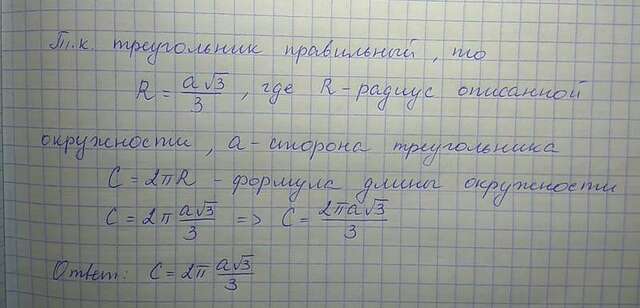 Т.к. треугольник правильный, то
R = a√3/3, где R - радиус описанной
окружности, a - сторона треугольника
C = 2πR - формула длины окружности
C = 2π a√3/3 => C = 2πa√3/3
Ответ: C = 2π a√3/3